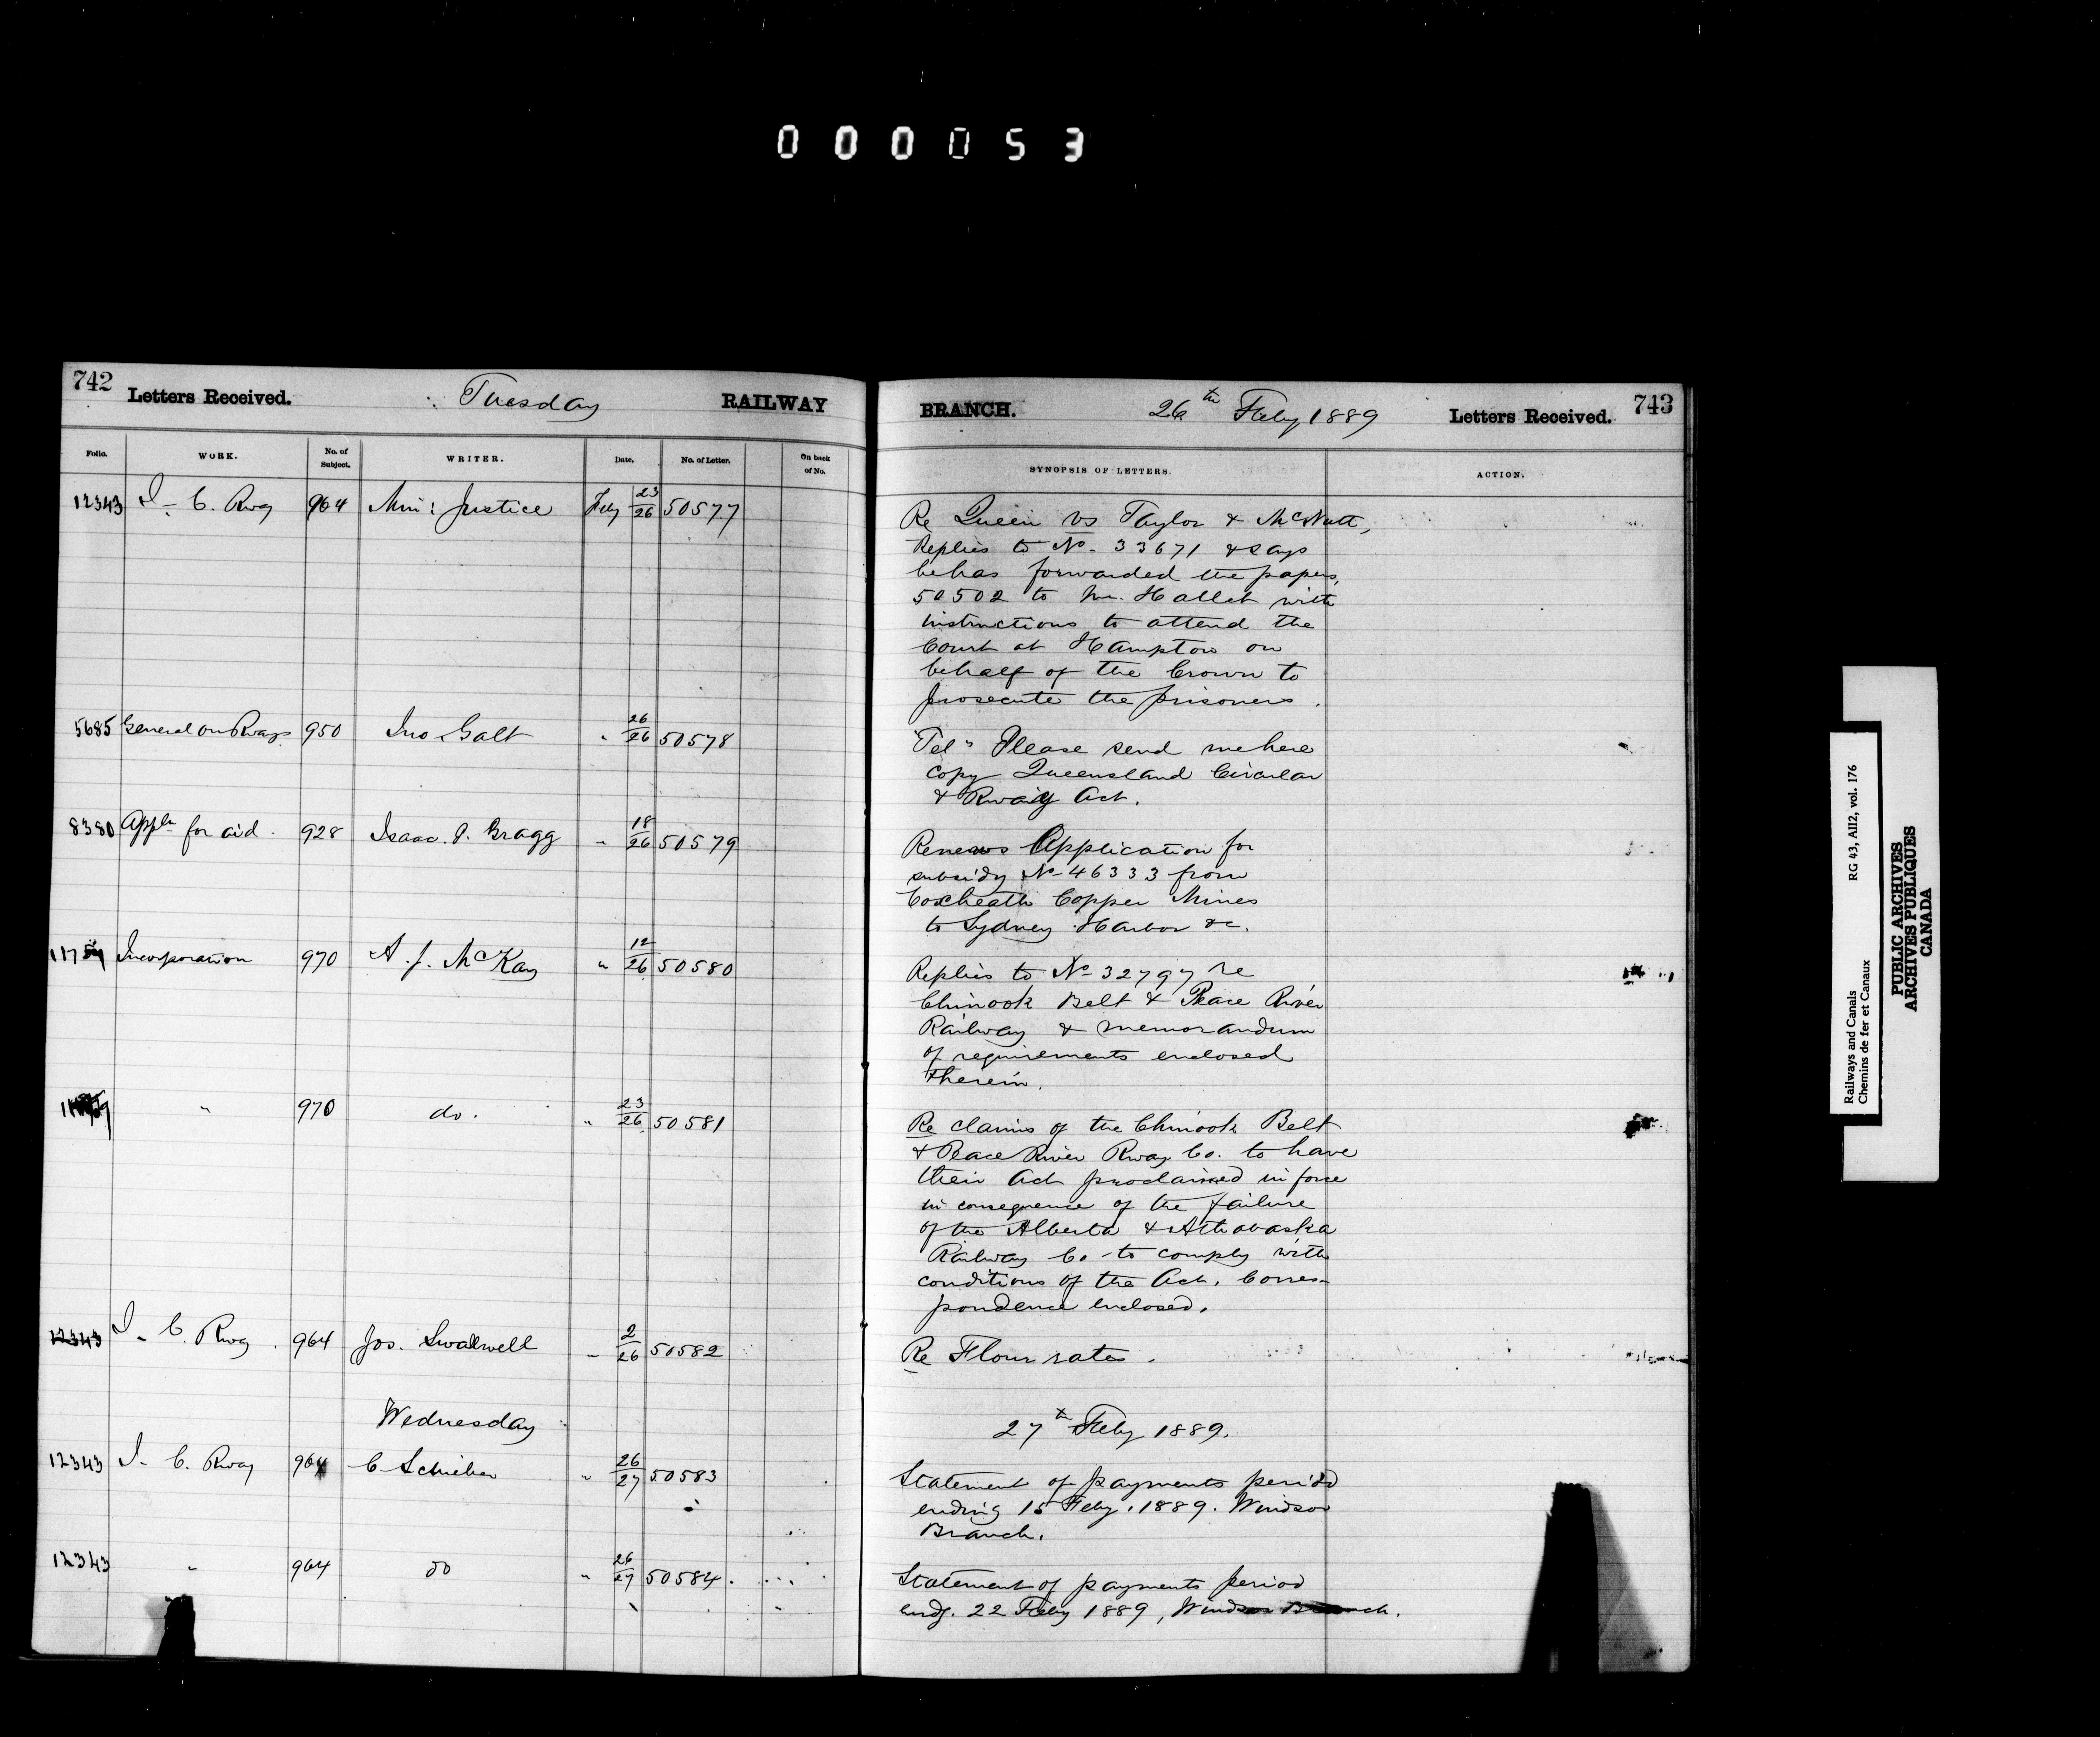 000053
742 Letters Received. Tuesday RAILWAY
Folio. WORK. No. of Subject. WRITER. Date. No. of Letter. On back of No.
12343 I. C. Rwy 964 Min: Justice Feby 23/26 50577
5685 General on Rways 950 Jno Galt " 26/26 50578
8380 Appln for aid. 928 Isaac. P. Gragg " 18/26 50579
Incorporation 970 A. J. McKay " 12/26 50580
" 970 do. " 23/26 50581
12343 I. C. Rwy. 964 Jos. Swalwell " 2/26 50582
Wednesday
12343 I. C. Rway 964 C Schieber " 26/27 50583
12343 " 964 do " 26/27 50584.
BRANCH. 26th Feby 1889 Letters Received. 743
SYNOPSIS OF LETTERS. ACTION.
Re Queen vs Taylor & McNutt,
Replies to No. 33671 & says
he has forwarded the papers,
50502 to Mr. Hallet with
instructions to attend the
Court at Hampton on
behalf of the Crown to
prosecute the prisoners.
Tel" Please send me here
copy Queensland Circular
& Rwaiy Act.
Renews Application for
subsidy No 46333 from
Coxheath Copper Mines
to Sydney Harbor &c.
Replies to No 32797 re
Chinook Belt & Peace River
Railway & memorandum
of requirements enclosed
therein.
Re claims of the Chinook Belt
& Peace River Rway Co. to have
their Act proclaimed in force
in consequence of the failure
of the Alberta & Athabaska
Railway Co. to comply with
conditions of the Act. Corres-
pondence enclosed.
Re Flour rates.
27th Feby 1889.
Statement of payments period
ending 15 Feby. 1889. Windsor
Branch.
Statement of payments period
endg. 22 Feby 1889, Windsor Branch.
Railways and Canals RG 43, AII2, vol. 176
Chemins de fer et Canaux
PUBLIC ARCHIVES
ARCHIVES PUBLIQUES
CANADA